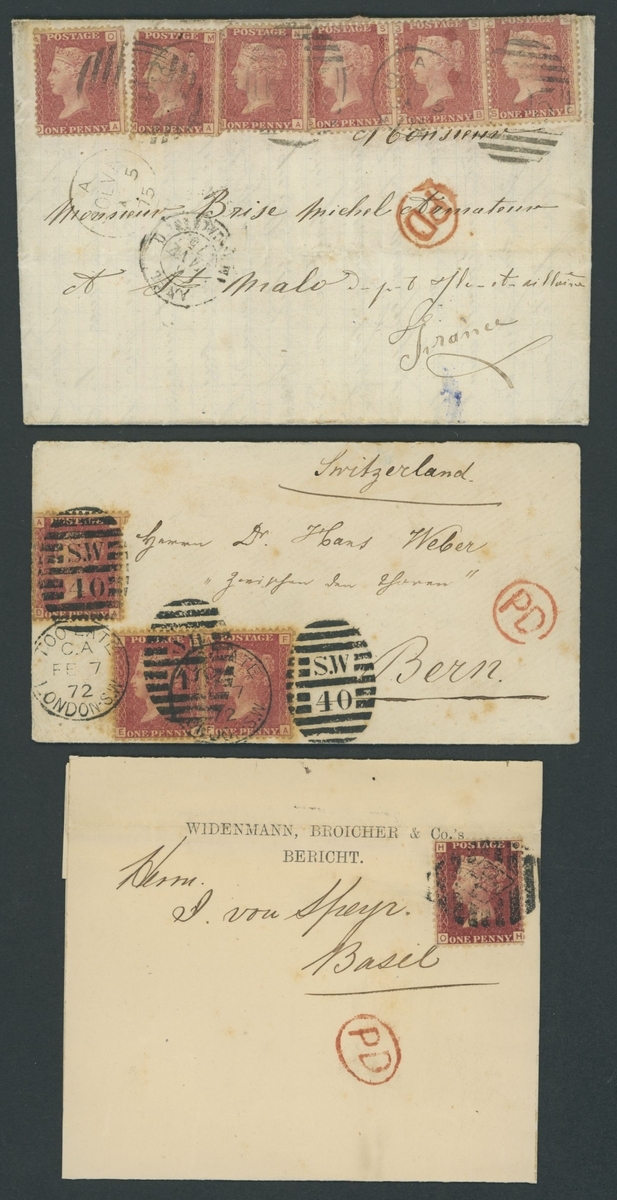 POSTAGE POSTAGE POSTAGE POSTAGE POSTAGE POSTAGE
ONE PENNY ONE PENNY ONE PENNY ONE PENNY ONE PENNY ONE PENNY
Monsieur
Monsieur Brise Michel Armateur
PD
A St Malo
France
Switzerland.
Herrn Dr. Hans Weber
"Zwischen den Thoren"
Bern.
PD
POSTAGE
S.W
40
ONE PENNY
TOO LATE
C.A
FE 7
72
LONDON-S.W
POSTAGE POSTAGE
ONE PENNY ONE PENNY
S.W
40
WIDENMANN, BROICHER & Co.'s
BERICHT.
Herrn.
J. von Speyr.
Basel
POSTAGE
ONE PENNY
PD